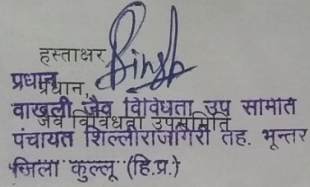 हस्ताक्षर
प्रधान
प्रधान,
वाखली जैव विविधता उप समिति
जैव विविधता उपसमिति
पंचायत शिल्लीराजगिरी तह. भून्तर
जिला कुल्लू (हि.प्र.)